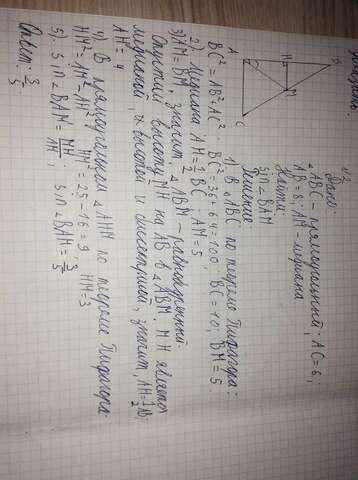 №2
Дано
△ABC – прямоугольный; AC=6;
AB=8; AM – медиана
Найти:
sin∠BAM
Решение
A
H
B
M
C
1) В △ABC по теореме Пифагора:
BC²=AB²+AC²; BC²=36+64=100; BC=10; BM=5
2) Медиана AM=½BC; AM=5
3) AM=BM, значит, △ABM – равнобедренный.
Опустим высоту MH на AB в △ABM. MH является
медианой, высотой и биссектрисой, значит, AH=½AB;
AH=4
4) В прямоугольном △AHM по теореме Пифагора
HM²=AM²-AH²; HM²=25-16=9; HM=3
5) sin∠BAM=MH/AM; sin∠BAM=3/5
Ответ: 3/5